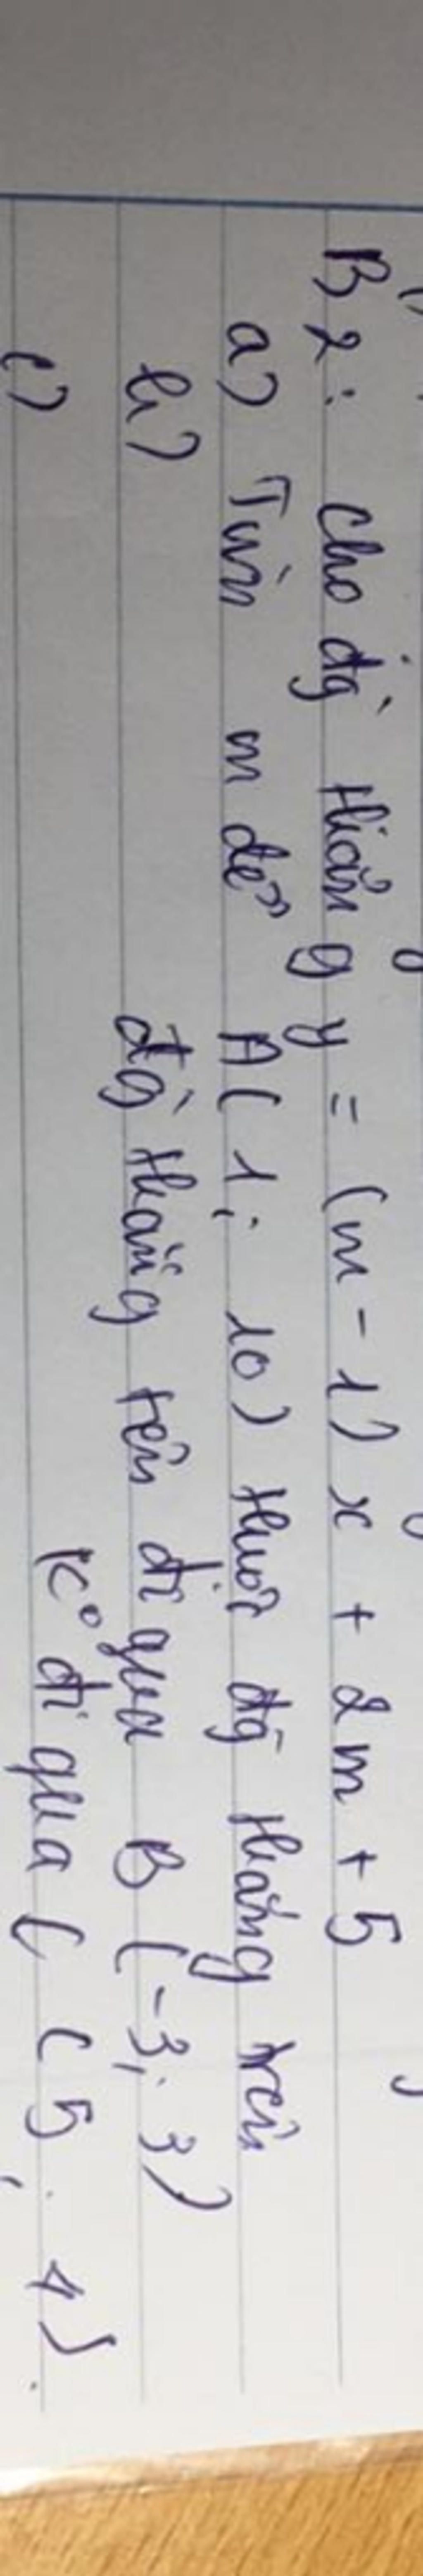 B2: Cho đg` thẳng y = (m - 1) x + 2m + 5
a) Tìm m để A( 1; 10) thuộc đg` thẳng trên
b) đg` thẳng trên đi qua B (-3; 3)
c) K° đi qua C (5; 4)